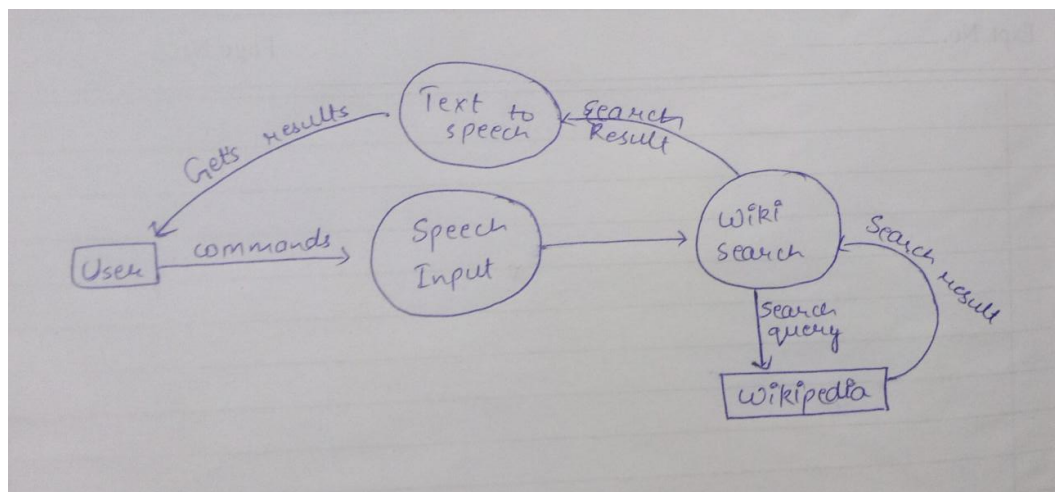 Text to
speech
Search
Result
Gets results
User
commands
Speech
Input
Wiki
Search
Search result
Search
query
Wikipedia